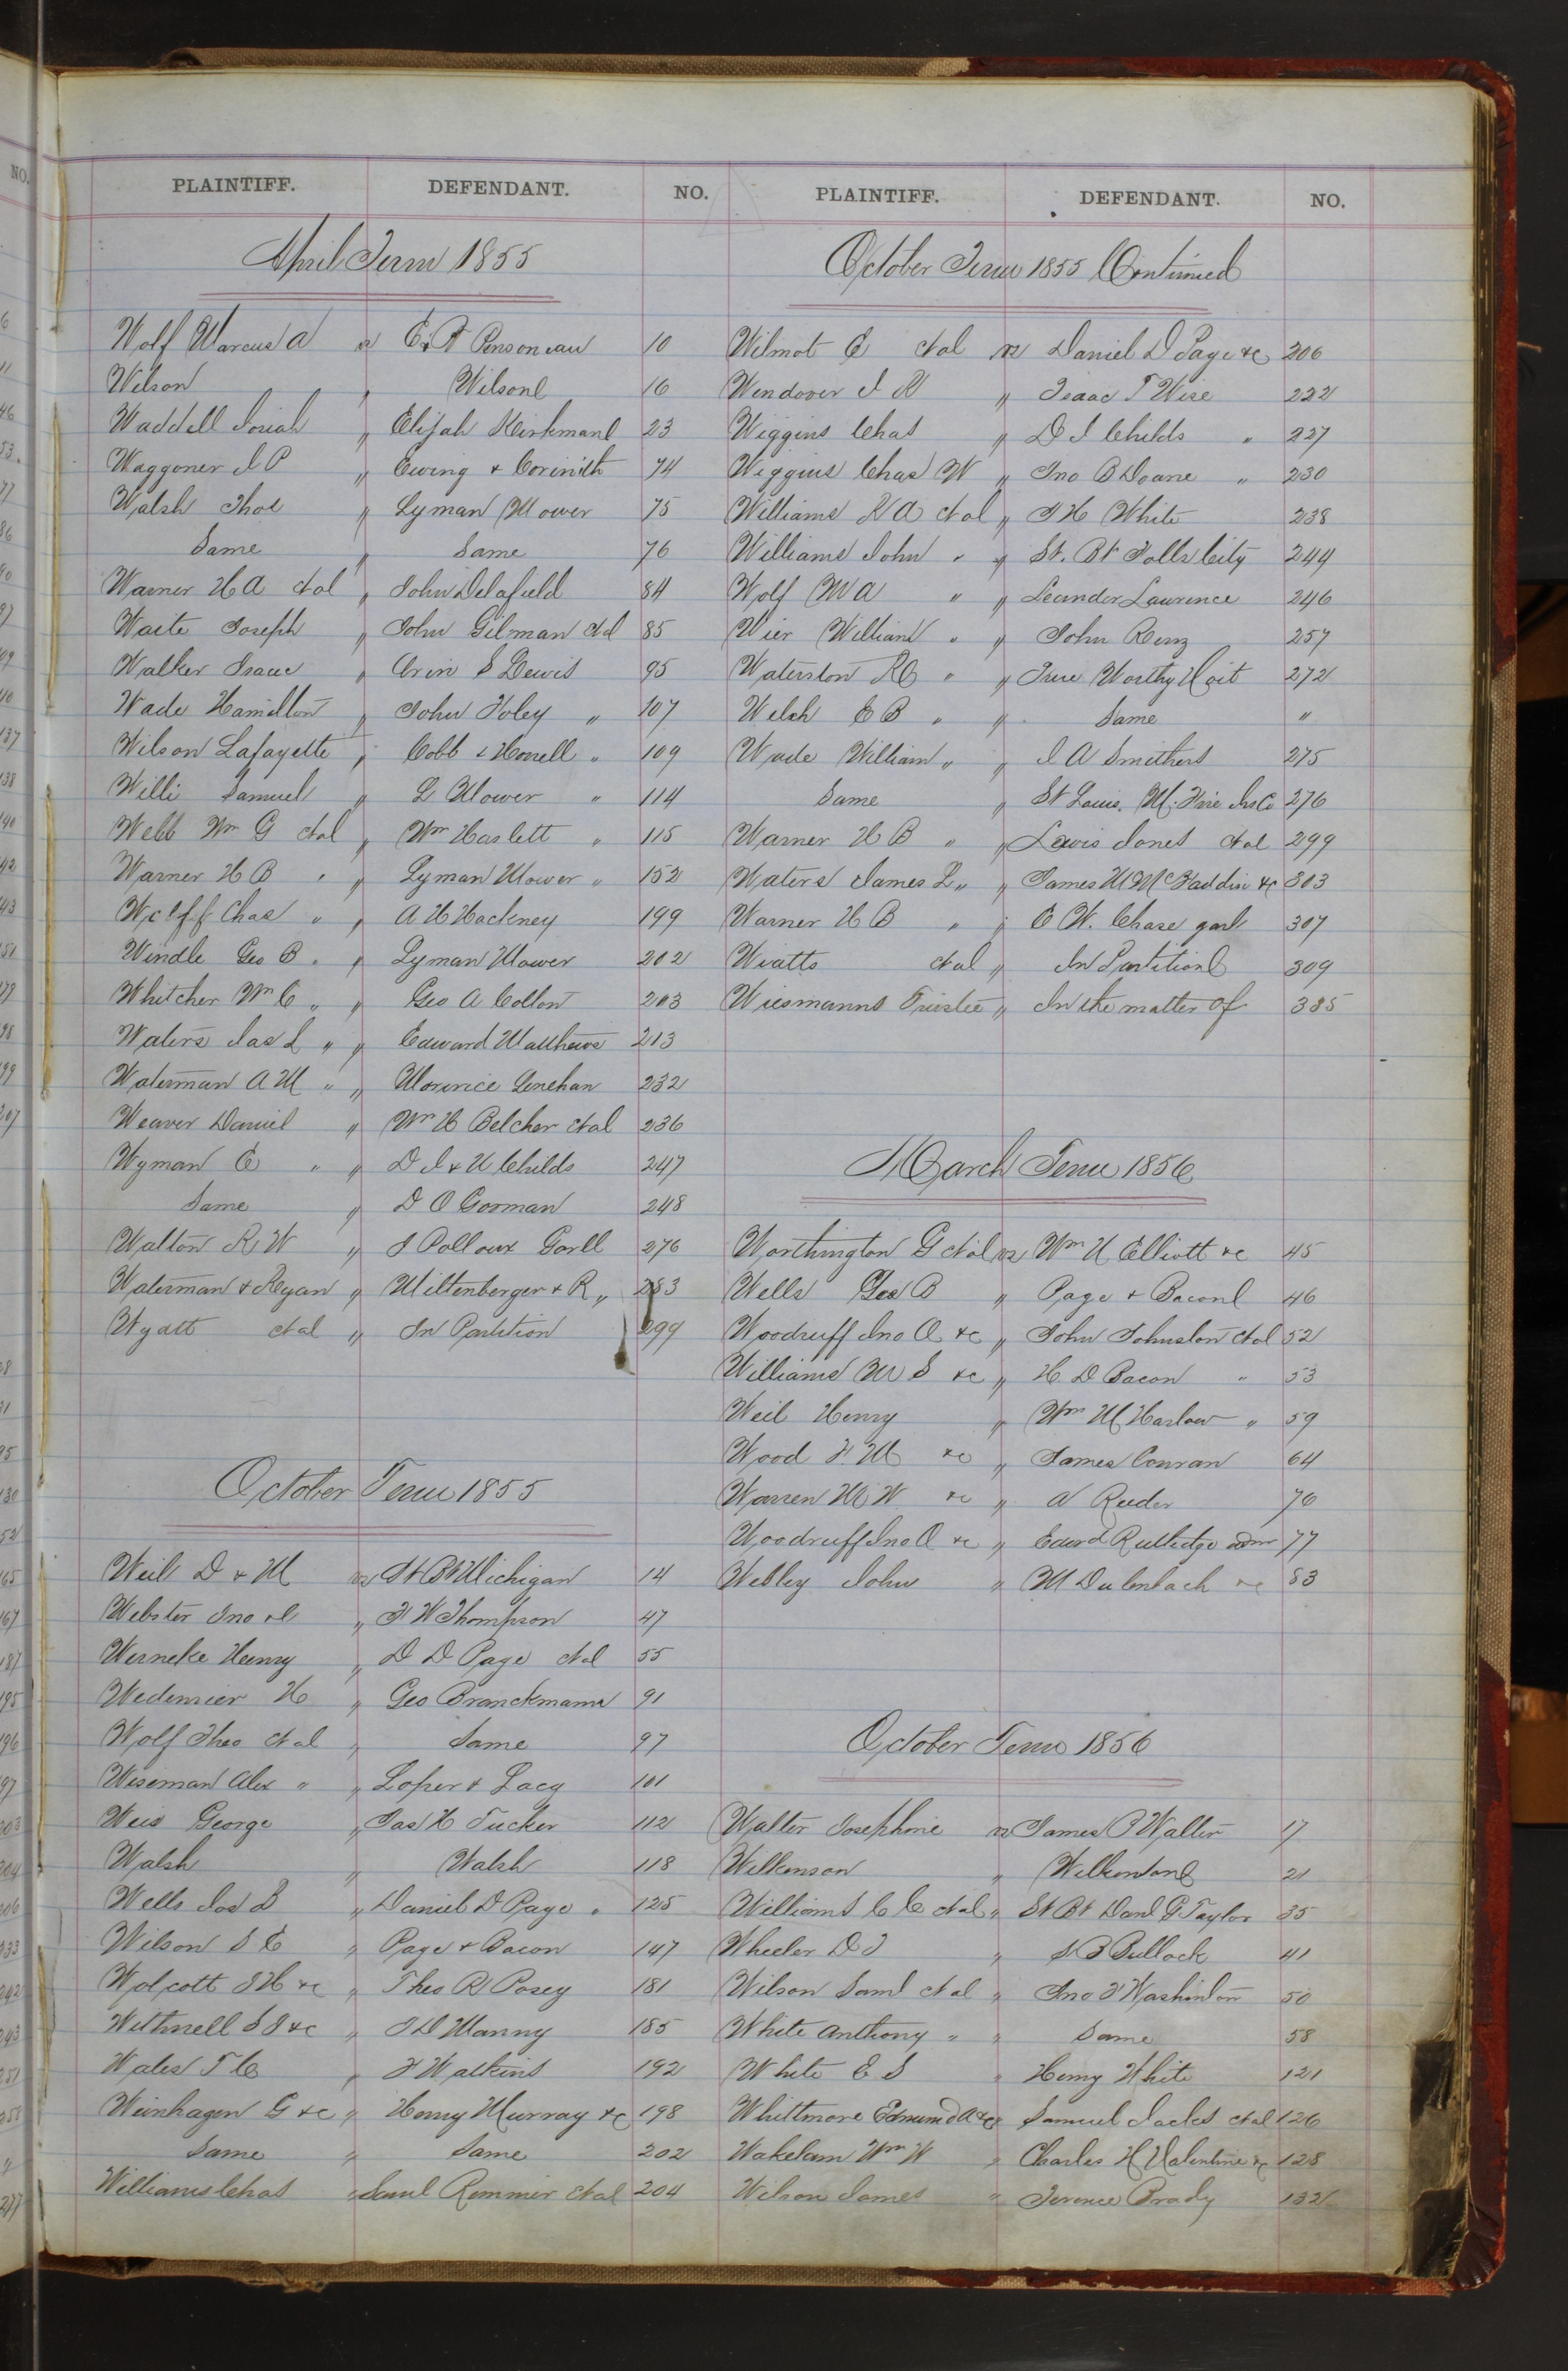 PLAINTIFF. DEFENDANT. NO.
April Term 1855
Wolf Marcus A vs E & R Pensoneau 10
Wilson " Wilson 16
Waddell Josiah " Elijah Kirkman 23
Waggoner J P " Ewing & 74
Walsh Thos " Lyman Mower 75
Same " Same 76
Warner H A et al " John Delafield 84
Waite Joseph " John Gilman et al 85
Walker Isaac " Orin S Lewis 95
Wade Hamilton " John Foley " 107
Wilson Lafayette " Cobb & " 109
Willi Samuel " L Mower " 114
Webb Wm G et al " Wm Haslett " 115
Warner H B " " Lyman Mower " 152
Wolff Chas " " A H Hackney 199
Windle Geo B " " Lyman Mower 202
Whitcher Wm C " " Geo A Colton 203
Waters Jas L " " Edward Matthews 213
Waterman A M " " Lenehan 232
Weaver Daniel " Wm H Belcher et al 236
Wyman E " " D J & U Childs 247
Same " D O Gorman 248
Walton R W " 276
Waterman & Ryan " Miltenberger & R " 283
Wyatt et al " In Partition 299
October Term 1855
Weil D & M vs St Bt Michigan 14
Webster Jno " F W Thompson 47
Werneke Henry " D D Page et al 55
Wedemier H " Geo Branckmann 91
Wolf Theo et al " Same 97
Wiseman Alex " " Loper & Lacy 101
Weis George " Jas H Tucker 112
Walsh " Walsh 118
Wells Jos B " Daniel D Page " 125
Wilson S E " Page & Bacon 147
Wolcott &c " Theo R Posey 181
Withnell &c " Manny 185
Wales T C " Watkins 192
Weinhagen G &c " Henry Murray &c 198
Same " Same 202
Williams Chas " Saml Rimmir et al 204
PLAINTIFF. DEFENDANT. NO.
October Term 1855 Continued
Wilmot E et al vs Daniel D Page &c 206
Wendover " Isaac T Wise 222
Wiggins Chas " D J Childs " 227
Wiggins Chas W " Jno B Doane " 230
Williams R A et al " White 238
Williams John " " St. Bt Falls City 244
Wolf M A " " Leander Lawrence 246
Wier William " " John Renz 257
Waterston R C " " True Worthy Hoit 272
Welch E B " " Same "
Wade William " " J A Smithers 275
Same " St Louis M. Fire Ins Co 276
Warner H B " " Lewis Jones et al 299
Waters James L " " James McFaddin &c 303
Warner H B " " E W. Chase garl 307
Wiatts et al " In Partition 309
Wiesmanns Trustee " In the matter of 335
March Term 1856
Worthington G et al vs Wm H Elliott &c 45
Wells Geo B " Page & Bacon 46
Woodruff Jno O &c " John Johnston et al 52
Williams M S &c " H D Bacon " 53
Weil Henry " Wm M Harlow " 59
Wood F. M &c " James Conran 64
Warren W &c " A Reeder 76
Woodruff Jno O &c " Edwd Rutledge adm 77
Webley John " M &c 83
October Term 1856
Walter Josephine vs James P Walter 17
Wilkinson " Wilkinson 21
Williams C C et al " St Bt Danl G Taylor 35
Wheeler D " S B Bullock 41
Wilson Saml et al " Jno F Washinton 50
White Anthony " " Same 58
White E S " Henry White 121
Whittmore Edmund A &c " Samuel Jacks et al 126
Wakelam Wm W " Charles H Valentine &c 128
Wilson James " Terence Brady 132